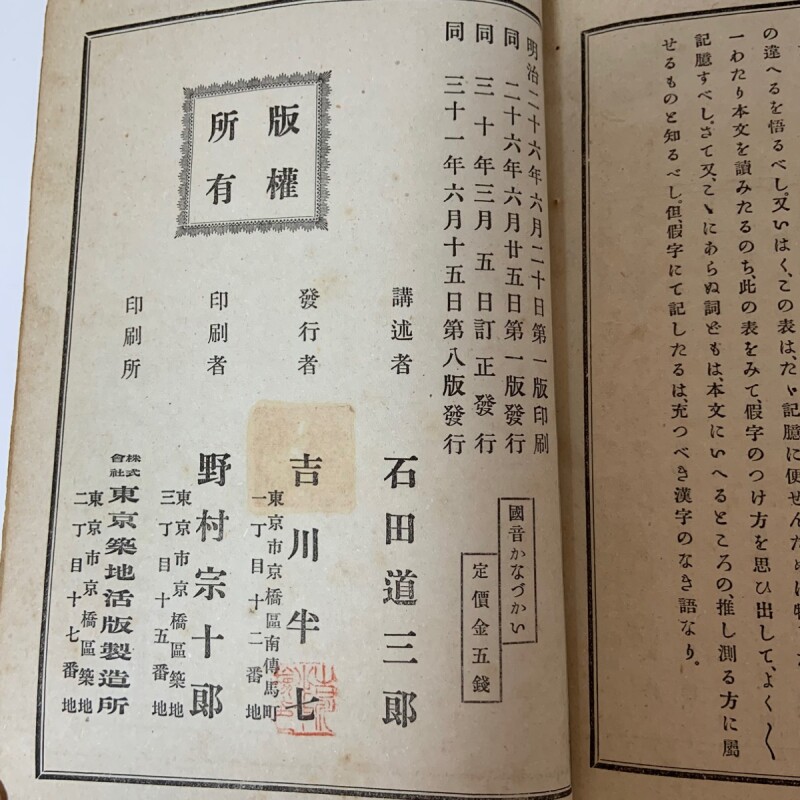 の違へるを悟るべし。又いはく、この表は、たゞ記臆に便せんため
一わたり本文を讀みたるのち、此の表をみて、假字のつけ方を思ひ出して、よく〱
記臆すべし。さて又、こゝにあらぬ詞どもは、本文にいへるところの、推し測る方に屬
せるものと知るべし。但、假字にて記したるは、充つべき漢字のなき語なり。
明治二十六年六月二十日第一版印刷
同 二十六年六月廿五日第一版發行
同 三十年三月五日訂正發行
同 三十一年六月十五日第八版發行
國音かなづかい
定價金五錢
版權
所有
講述者 石田道三郎
發行者 吉川半七
東京市京橋區南傳馬町
一丁目十二番地
印刷者 野村宗十郎
東京市京橋區築地
三丁目十五番地
印刷所 株式會社 東京築地活版製造所
東京市京橋區築地
二丁目十七番地